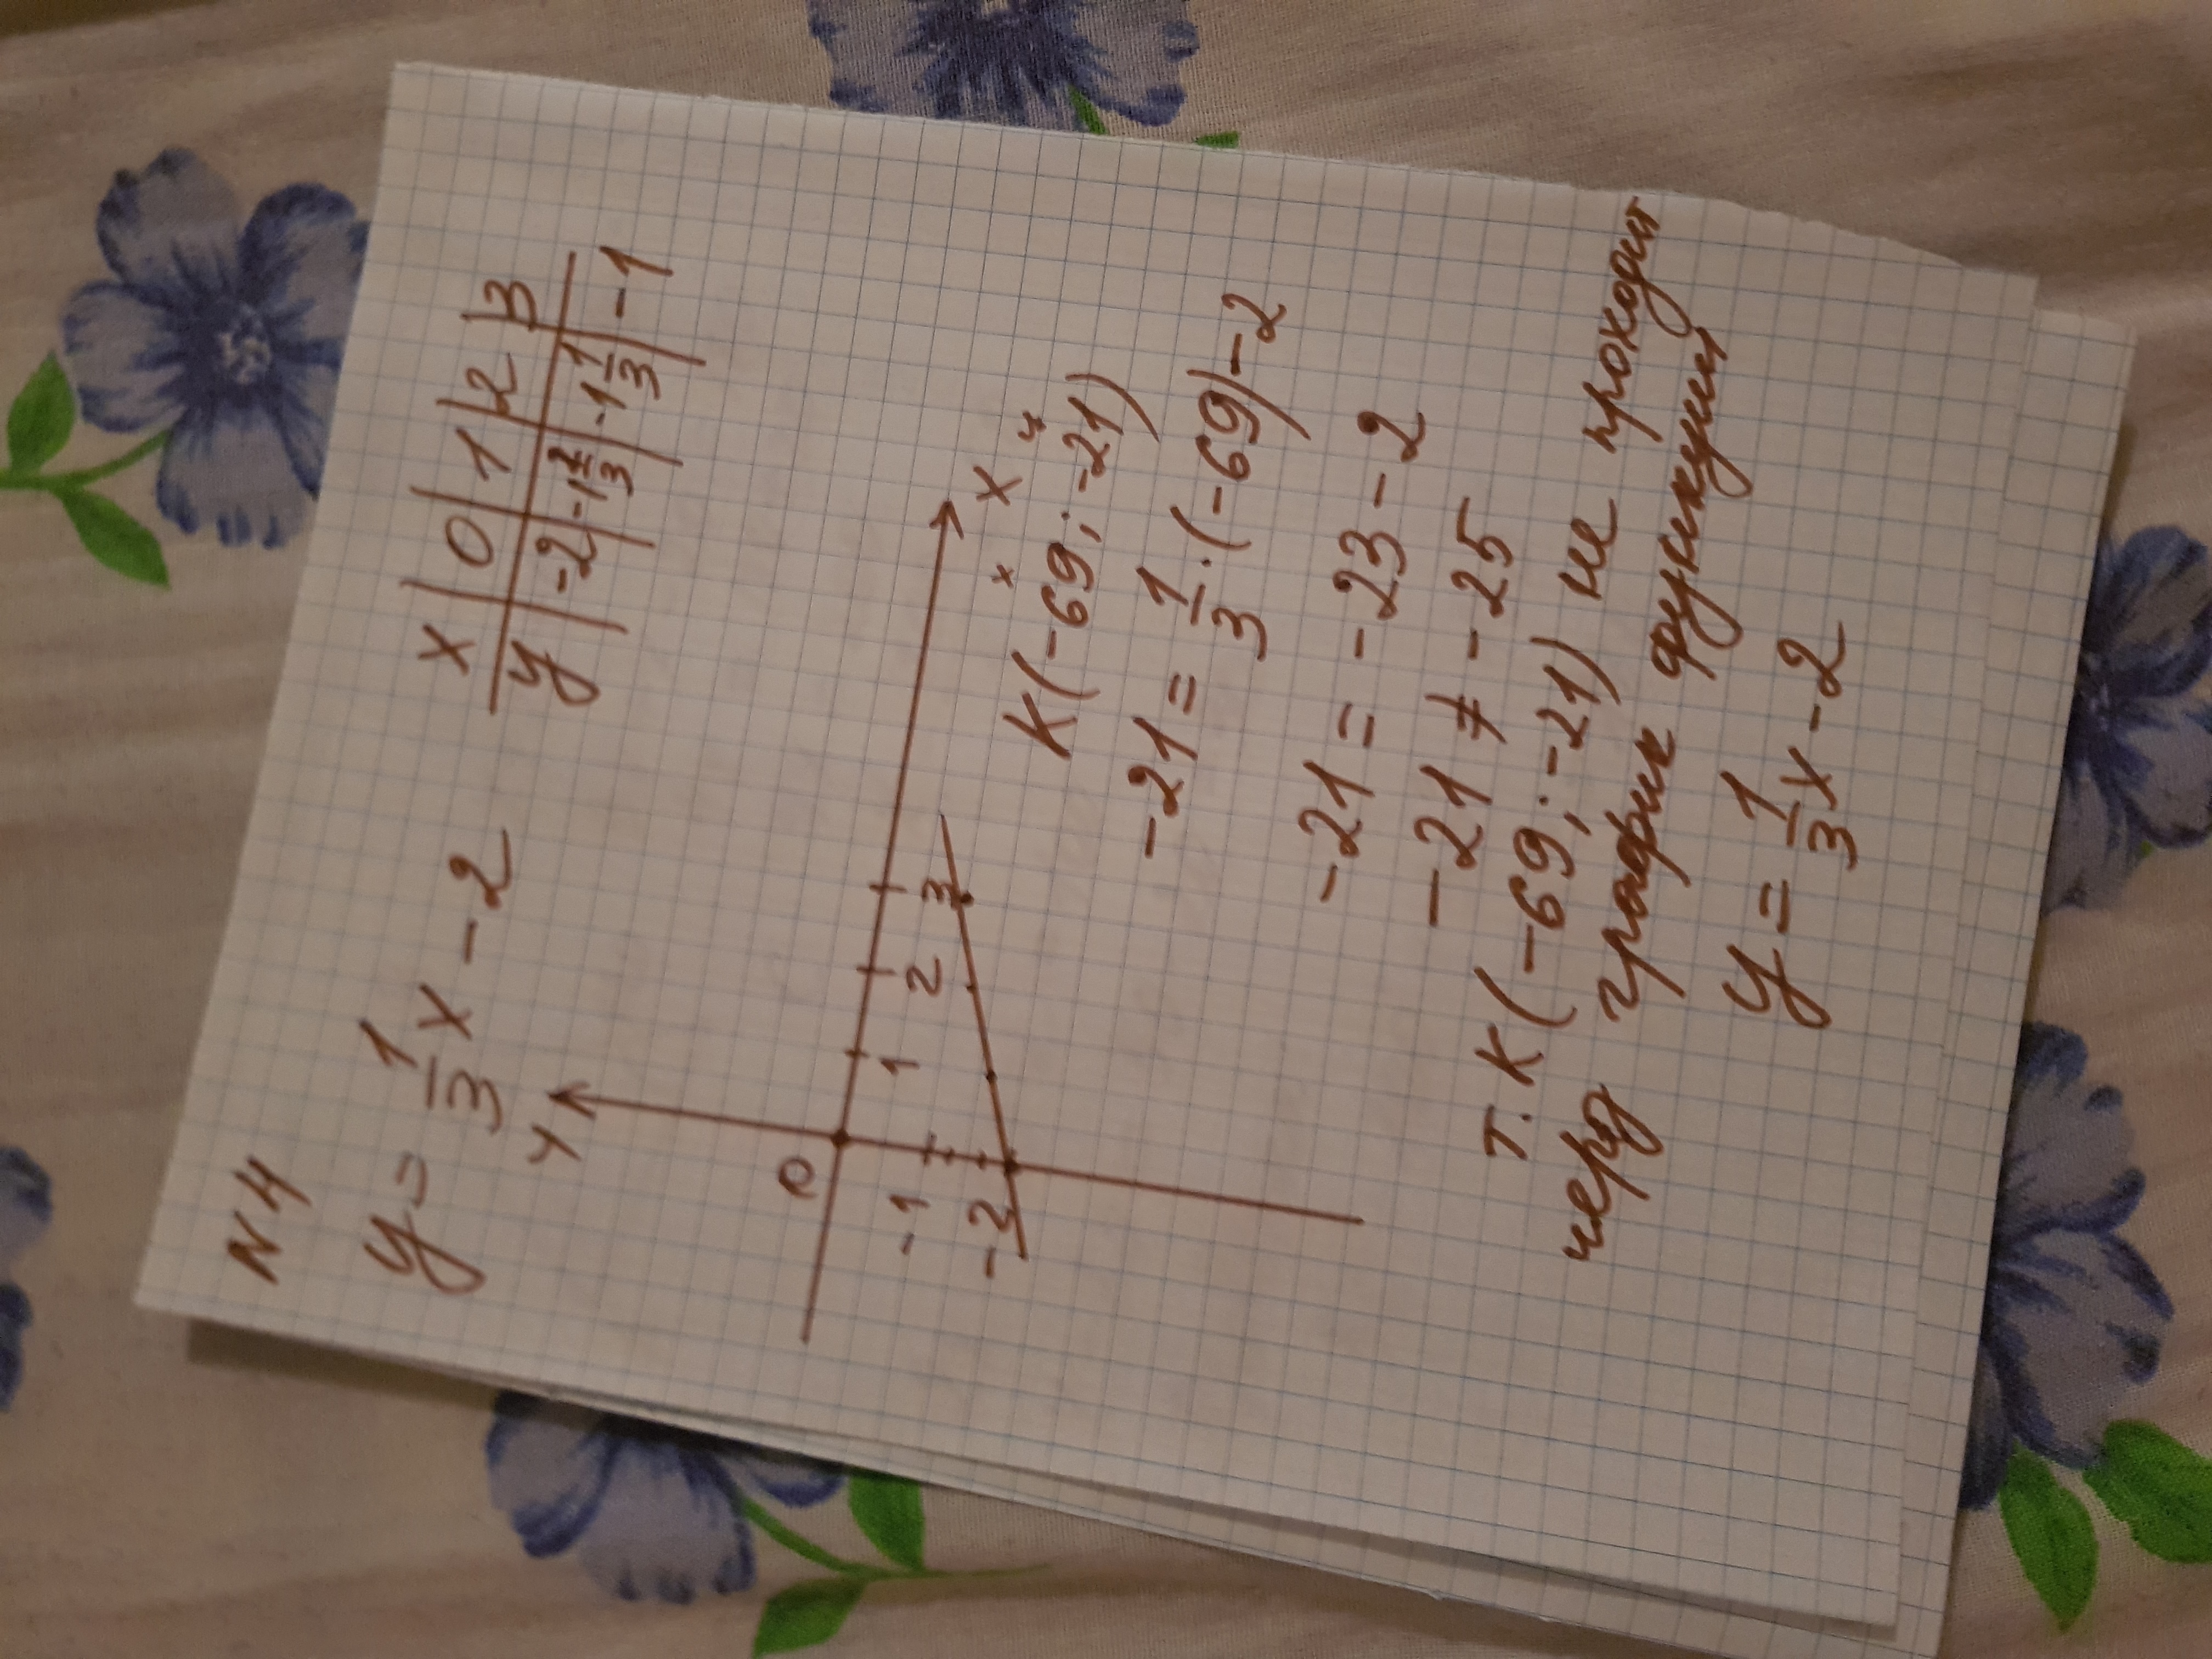 N4
y = 1/3 x - 2
x | 0 | 1 | 2 | 3
y | -2 | -1 2/3 | -1 1/3 | -1
y
0
1 2 3
x
-1
-2
x y
K(-69; -21)
-21 = 1/3 · (-69) - 2
-21 = -23 - 2
-21 ≠ -25
т. K(-69; -21) не проходит
через график функции
y = 1/3 x - 2